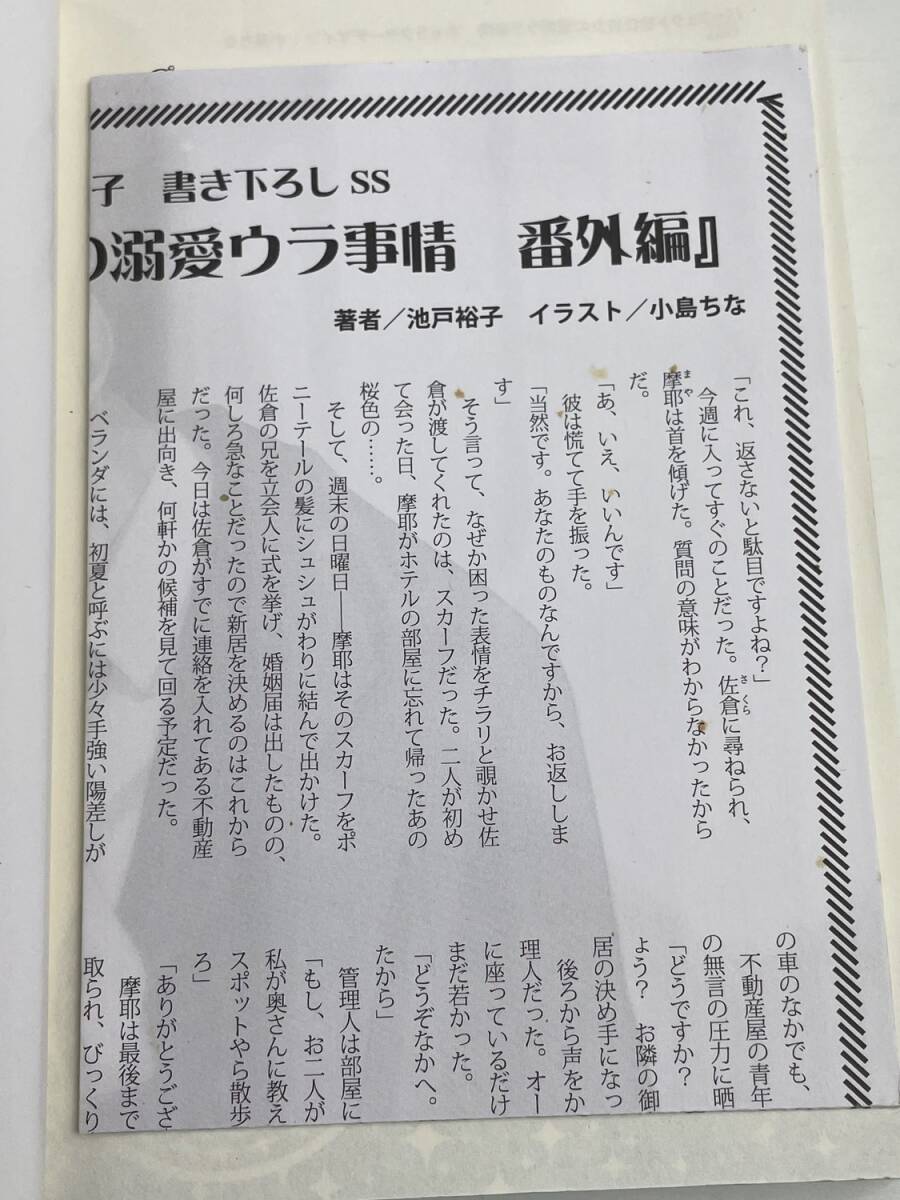 子　書き下ろしSS
溺愛ウラ事情　番外編』
著者／池戸裕子　イラスト／小島ちな
「これ、返さないと駄目ですよね？」
今週に入ってすぐのことだった。佐倉に尋ねられ、
摩耶は首を傾げた。質問の意味がわからなかったから
だ。
「あ、いえ、いいんです」
彼は慌てて手を振った。
「当然です。あなたのものなんですから、お返ししま
す」
そう言って、なぜか困った表情をチラリと覗かせ佐
倉が渡してくれたのは、スカーフだった。二人が初め
て会った日、摩耶がホテルの部屋に忘れて帰ったあの
桜色の……。
そして、週末の日曜日――摩耶はそのスカーフをポ
ニーテールの髪にシュシュがわりに結んで出かけた。
佐倉の兄を立会人に式を挙げ、婚姻届は出したものの、
何しろ急なことだったので新居を決めるのはこれから
だった。今日は佐倉がすでに連絡を入れてある不動産
屋に出向き、何軒かの候補を見て回る予定だった。
ベランダには、初夏と呼ぶには少々手強い陽差しが
の車のなかでも、
不動産屋の青年
の無言の圧力に晒
「どうですか？
ょう？　お隣の御
居の決め手になっ
後ろから声をか
理人だった。オー
に座っているだけ
まだ若かった。
「どうぞなかへ。
たから」
管理人は部屋に
「もし、お二人が
私が奥さんに教え
スポットやら散歩
ろ」
「ありがとうござ
摩耶は最後まで
取られ、びっくり